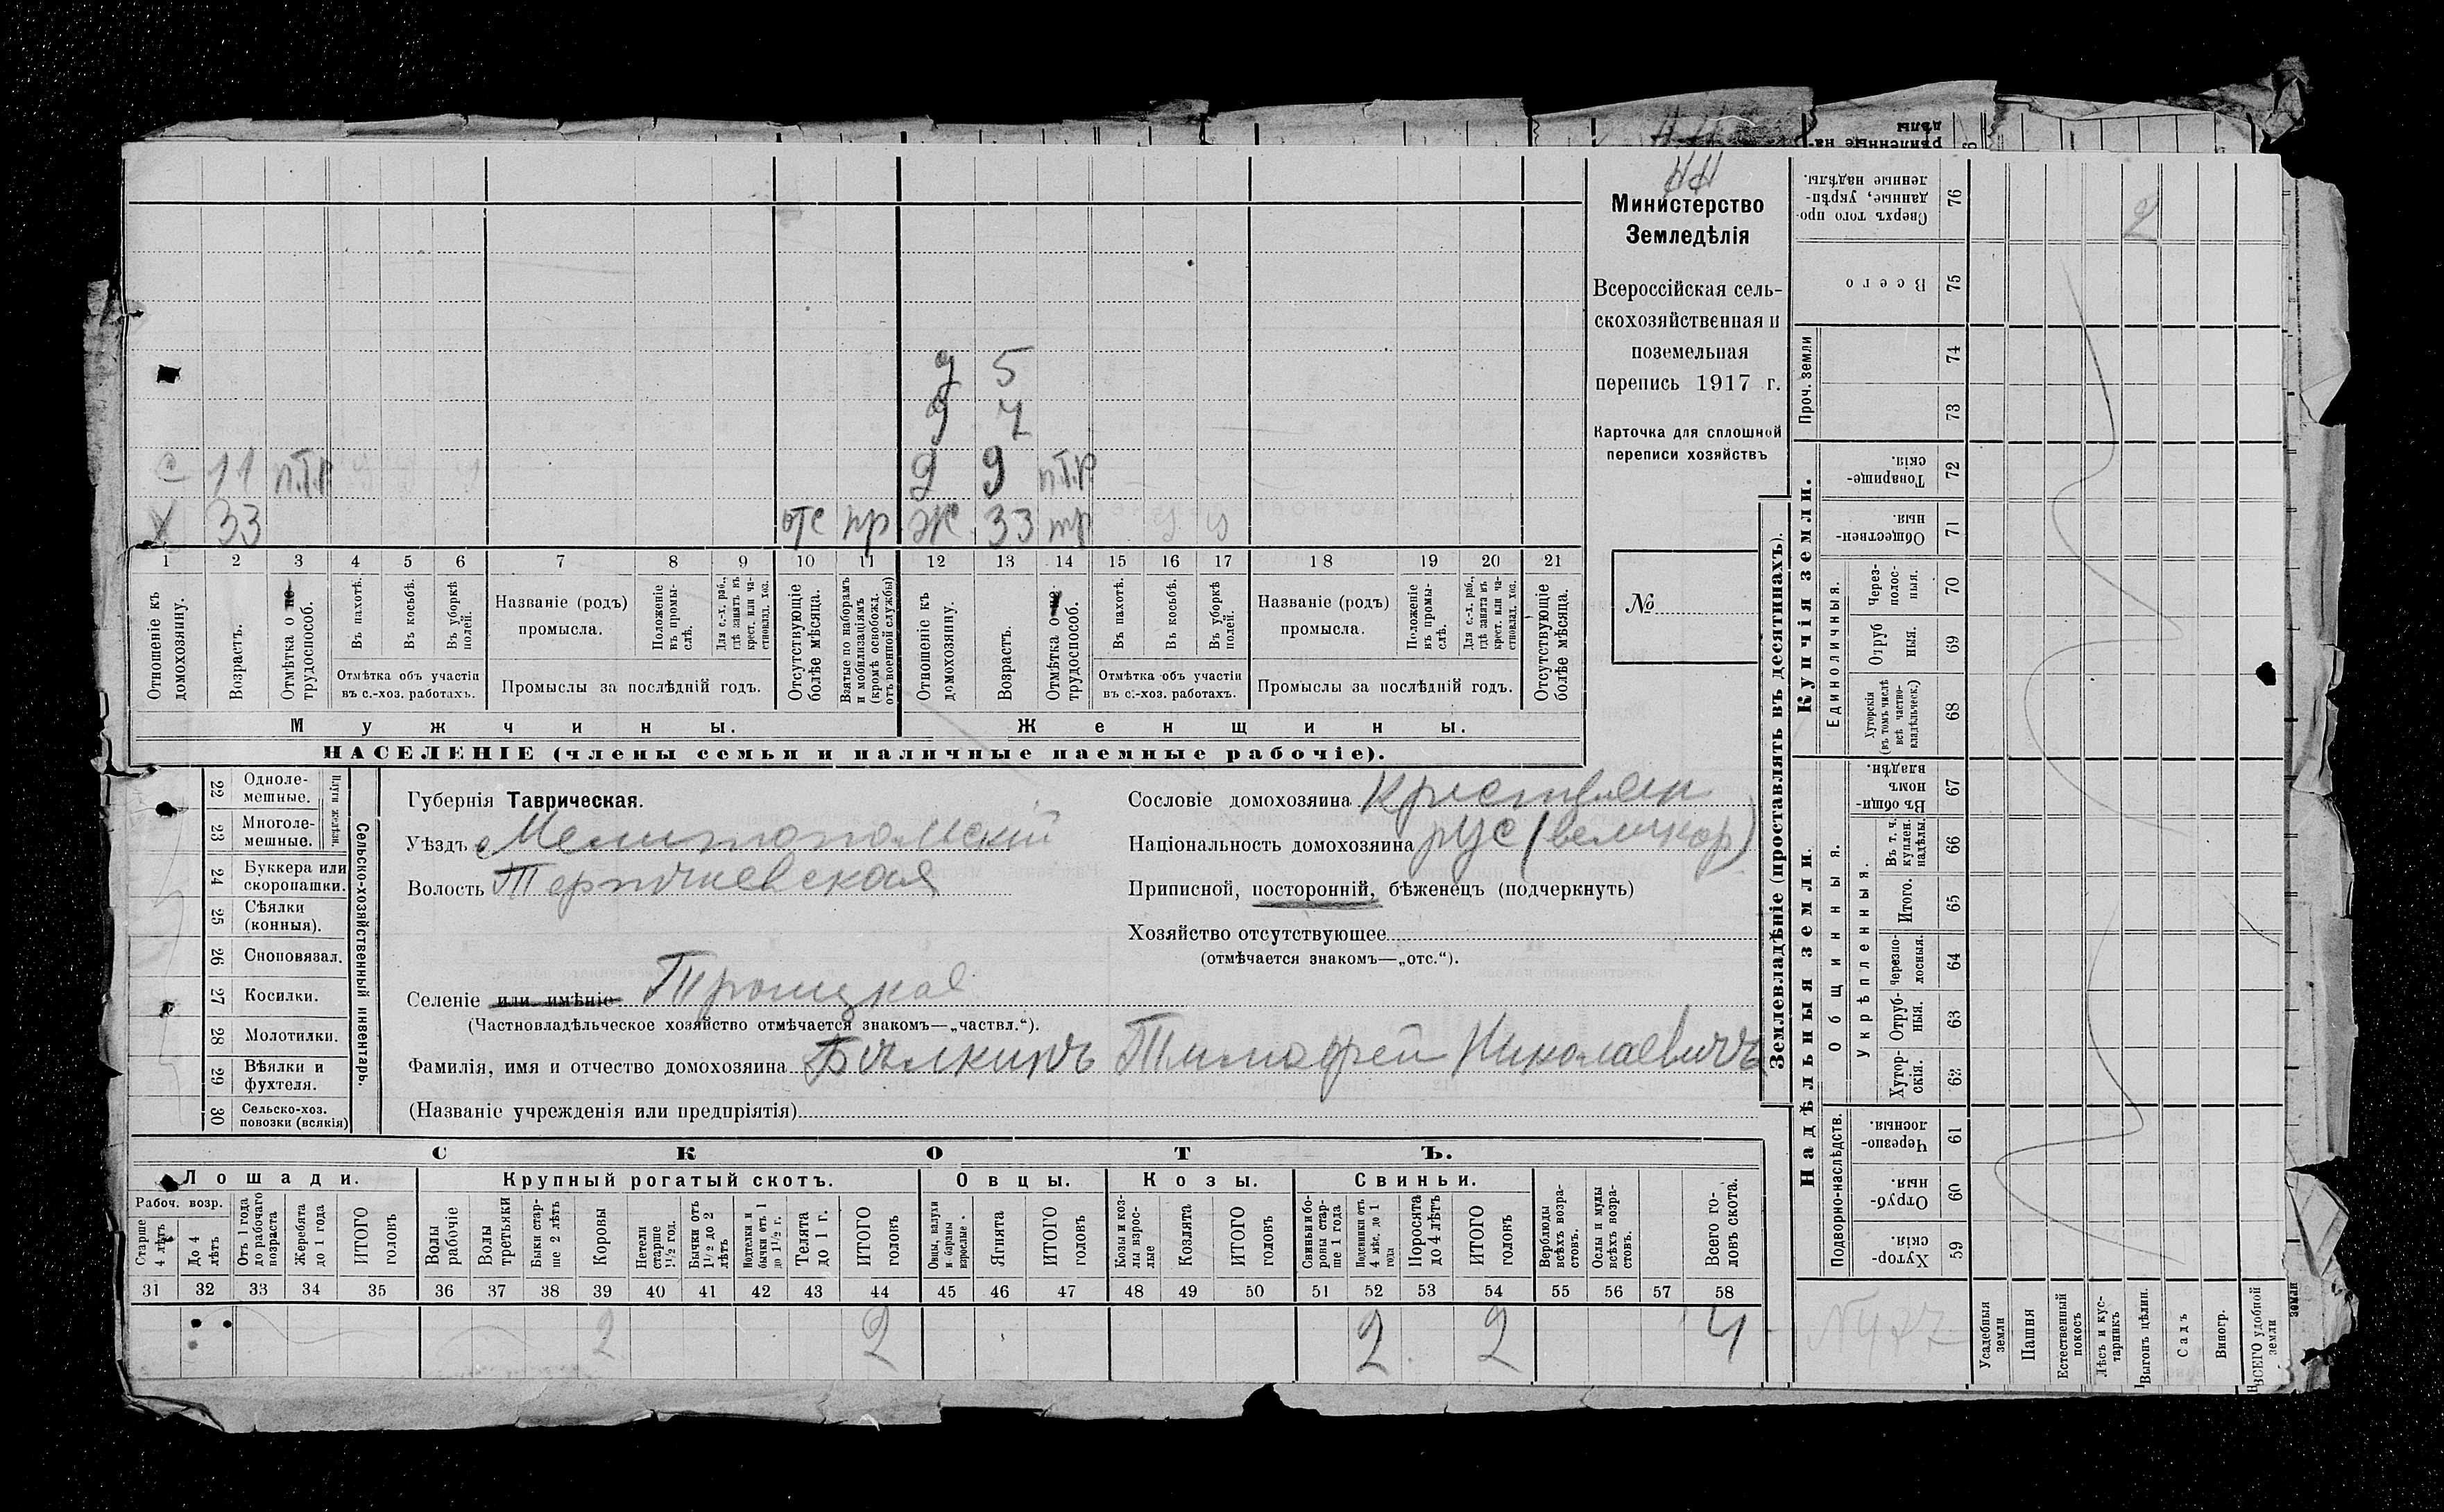 44
Министерство
Земледѣлія
Всероссійская сель-
скохозяйственная и
поземельная
перепись 1917 г.
Карточка для сплошной
переписи хозяйствъ
№
д 5
д 7
с 11 п.т.р д 9 п.т.р
х 33 отс пр ж 33 тр
1 2 3 4 5 6 7 8 9 10 11 12 13 14 15 16 17 18 19 20 21
Отношеніе къ домохозяину.
Возрастъ.
Отмѣтка о не- трудоспособ.
Въ пахотѣ.
Въ косьбѣ.
Въ уборкѣ полей.
Отмѣтка объ участіи въ с.-хоз. работахъ.
Названіе (родъ) промысла.
Положеніе въ промы- слѣ.
Для с.-х. раб., гдѣ занятъ въ крест. или ча- стновлад. хоз.
Промыслы за послѣдній годъ.
Отсутствующіе болѣе мѣсяца.
Взятые по наборамъ и мобилизаціямъ (кромѣ освобожд. отъ военной службы)
Отношеніе къ домохозяину.
Возрастъ.
Отмѣтка о не- трудоспособ.
Въ пахотѣ.
Въ косьбѣ.
Въ уборкѣ полей.
Отмѣтка объ участіи въ с.-хоз. работахъ.
Названіе (родъ) промысла.
Положеніе въ промы- слѣ.
Для с.-х. раб., гдѣ занята въ крест. или ча- стновлад. хоз.
Промыслы за послѣдній годъ.
Отсутствующіе болѣе мѣсяца.
Мужчины. Женщины.
НАСЕЛЕНІЕ (члены семьи и наличные наемные рабочіе).
22 Одноле- мешные.
23 Многоле- мешные.
24 Буккера или скоропашки.
25 Сѣялки (конныя).
26 Сноповязал.
27 Косилки.
28 Молотилки.
29 Вѣялки и фухтеля.
30 Сельско-хоз. повозки (всякія)
Сельско-хозяйственный инвентарь.
Губернія Таврическая.
Уѣздъ Мелитопольскій
Волость Терпѣніевская
Сословіе домохозяина Крестьян
Національность домохозяина рус (великор)
Приписной, посторонній, бѣженецъ (подчеркнуть)
Хозяйство отсутствующее
(отмѣчается знакомъ—„отс.“).
Селеніе или имѣніе Троицкое
(Частновладѣльческое хозяйство отмѣчается знакомъ—„частвл.“).
Фамилія, имя и отчество домохозяина Бѣлкинъ Тимофей Николаевичъ
(Названіе учрежденія или предпріятія)
СКОТЪ.
Лошади. Крупный рогатый скотъ. Овцы. Козы. Свиньи.
Рабоч. возр.
Старше 4 лѣтъ
До 4 лѣтъ
Отъ 1 года до рабочаго возраста
Жеребята до 1 года
ИТОГО головъ
Волы рабочіе
Волы третьяки
Быки стар- ше 2 лѣтъ
Коровы
Нетели старше 1½ год.
Бычки отъ 1½ до 2 лѣтъ
Подтелки и бычки отъ 1 до 1½ г.
Телята до 1 г.
ИТОГО головъ
Овцы, валухи и бараны взрослые
Ягнята
ИТОГО головъ
Козы и коз- лы взрос- лые
Козлята
ИТОГО головъ
Свиньи и бо- ровы стар- ше 1 года
Подсвинки отъ 4 мѣс. до 1 года
Поросята до 4 лѣтъ
ИТОГО головъ
Верблюды всѣхъ возра- стовъ.
Ослы и мулы всѣхъ возра- стовъ.
Всего го- ловъ скота.
31 32 33 34 35 36 37 38 39 40 41 42 43 44 45 46 47 48 49 50 51 52 53 54 55 56 57 58
2 2 2 2 4
Землевладѣніе (проставлять въ десятинахъ).
Купчія земли.
Надѣльныя земли.
Проч. земли
Единоличныя.
Общинныя.
Укрѣпленныя.
Подворно-наслѣдств.
Сверхъ того про- данные, укрѣп- ленные надѣлы. 76
Всего 75
74
73
Товарище- скія. 72
Обществен- ныя. 71
Через- полос- ныя. 70
Отруб ныя. 69
Хуторскія (въ томъ числѣ всѣ частно- владѣльческ.) 68
Въ общи- номъ владѣн. 67
Въ т. ч. куплен. надѣлы. 66
Итого. 65
Черезпо- лосныя. 64
Отруб- ныя. 63
Хутор- скія. 62
Черезпо- лосныя. 61
Отруб- ныя. 60
Хутор- скія. 59
2
Усадебныя земли
Пашня
Естественный покосъ
Лѣсъ и кус- тарникъ
Выгонъ цѣлин.
Садъ
Виногр.
ВСЕГО удобной земли